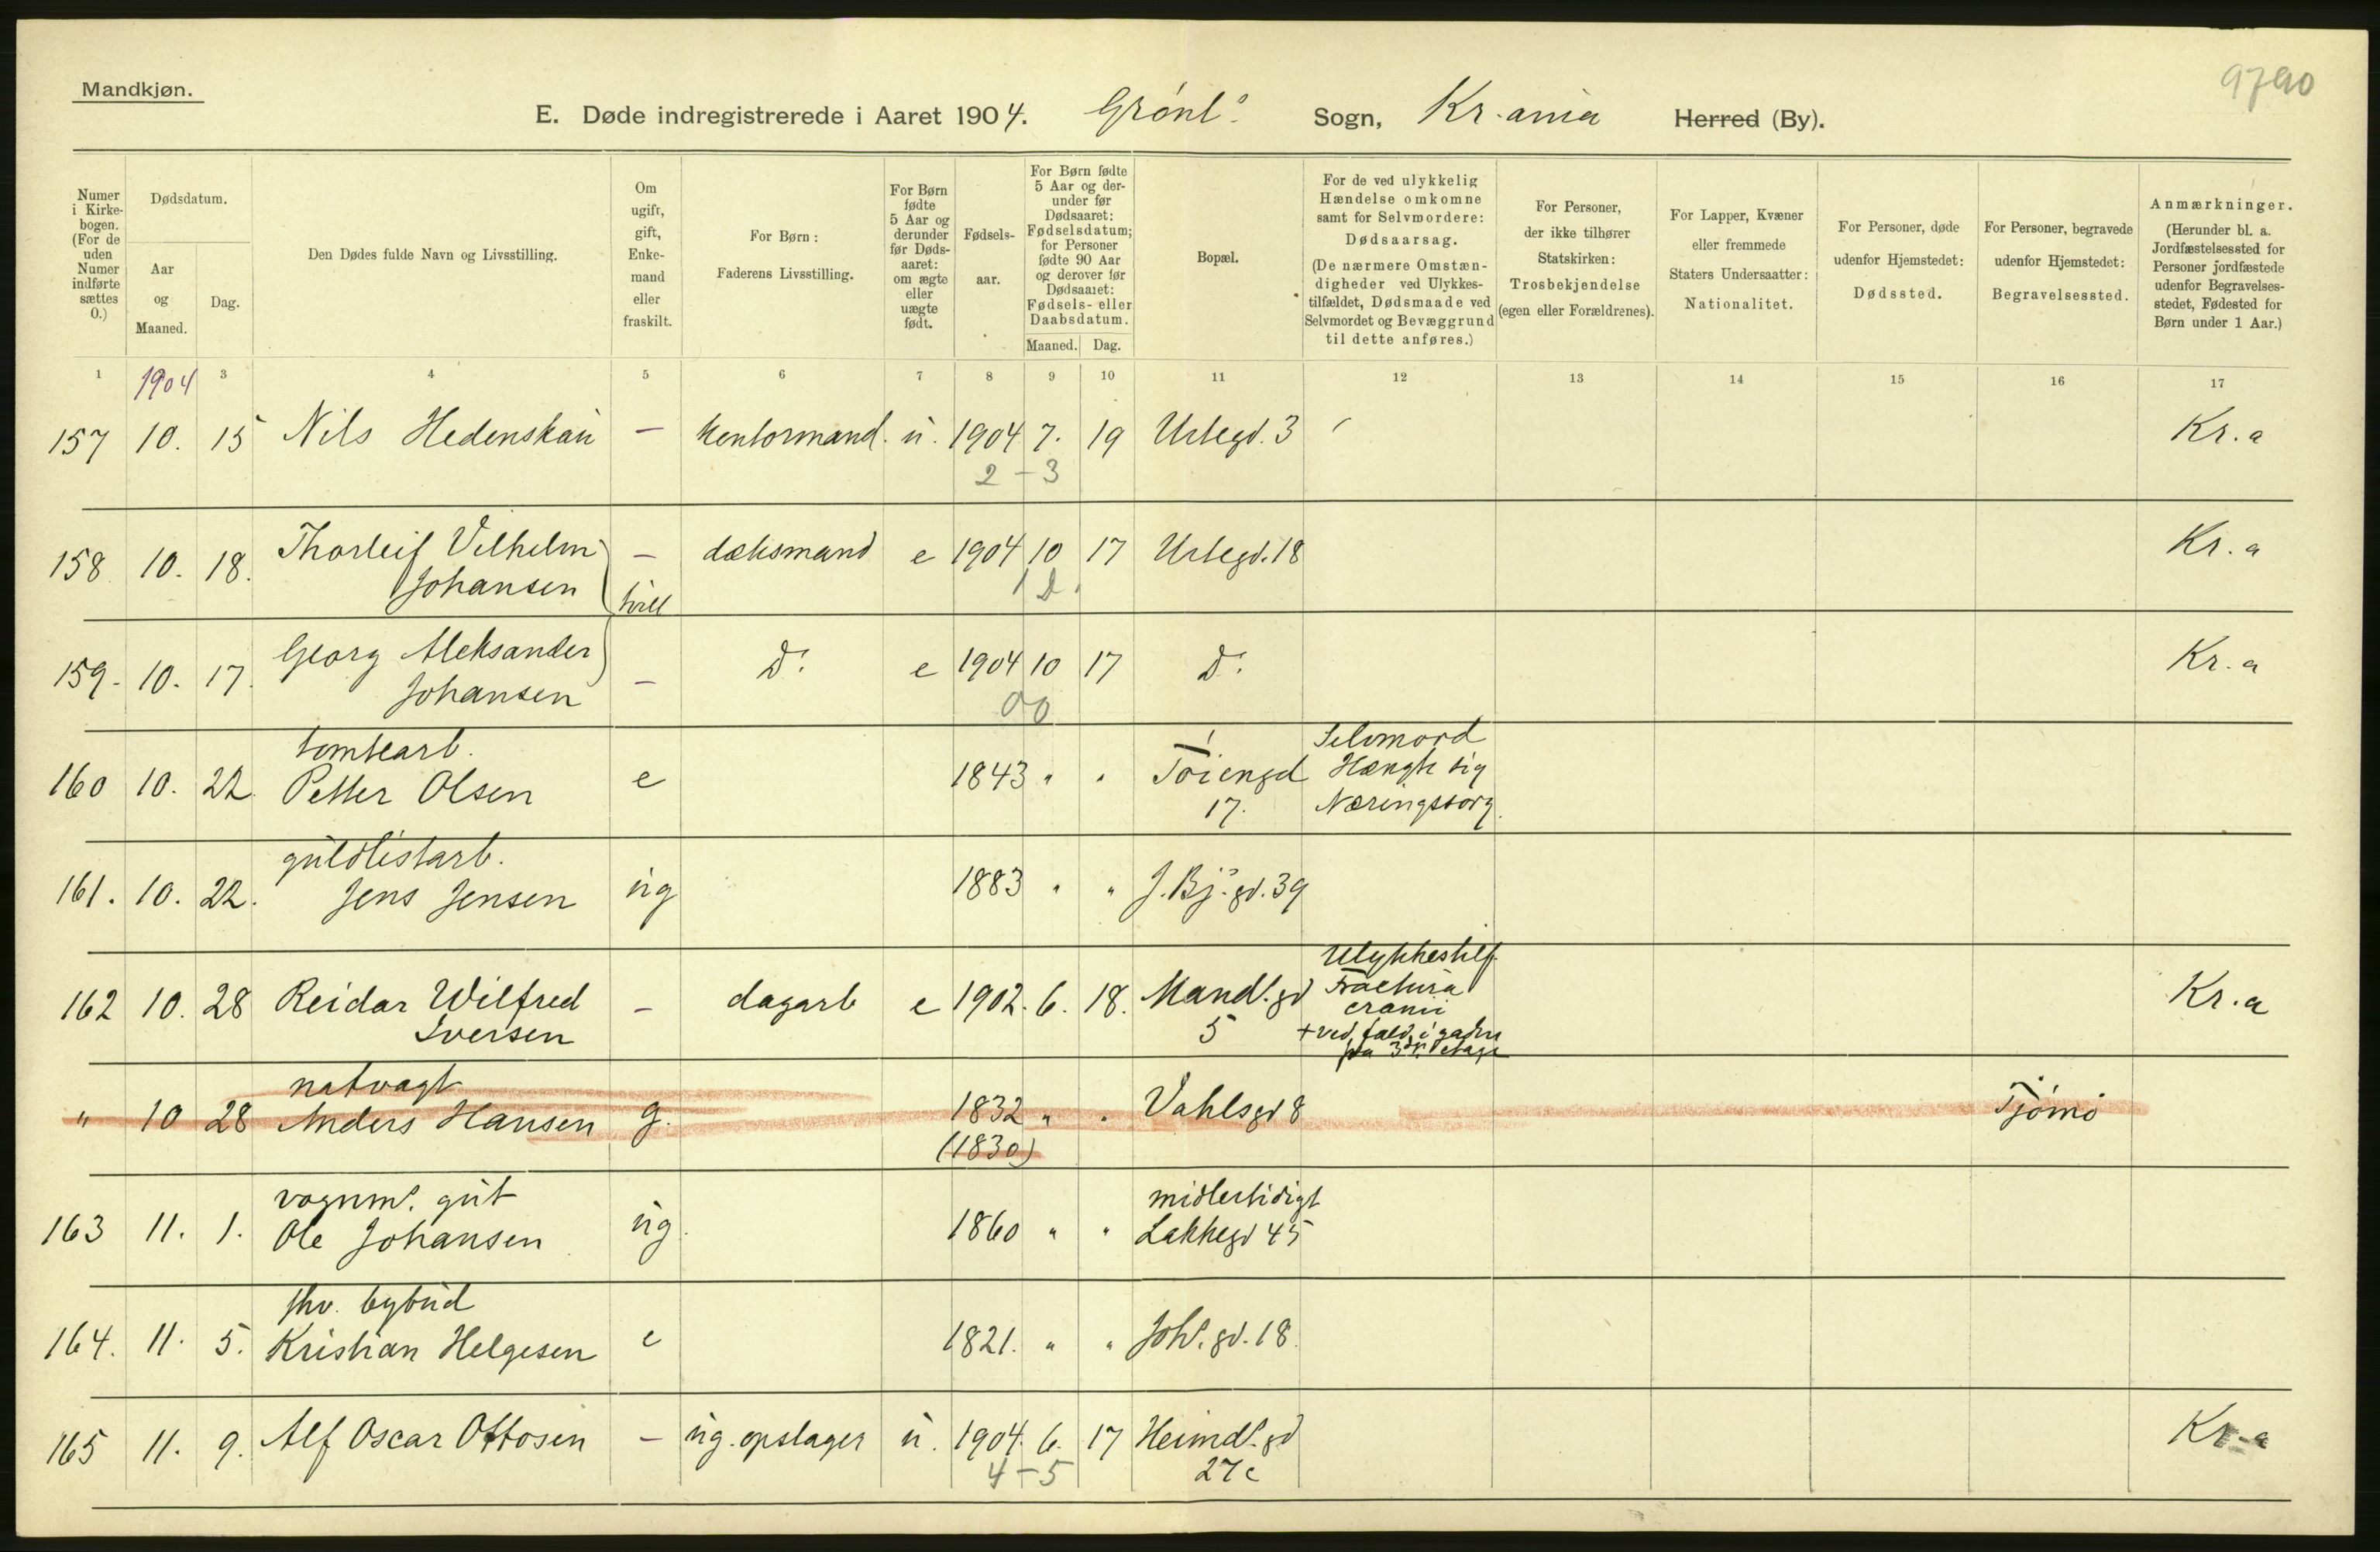 Mandkjøn.
9790
E. Døde indregistrerede i Aaret 1904. Grønl.s Sogn, Kr.ania Herred (By).
Numer i Kirke-bogen. (For de uden Numer indførte sættes 0.)
Dødsdatum.
Aar og Maaned.
Dag.
Den Dødes fulde Navn og Livsstilling.
Om ugift, gift, Enke-mand eller fraskilt.
For Børn: Faderens Livsstilling.
For Børn fødte 5 Aar og derunder før Døds-aaret: om ægte eller uægte født.
Fødsels-aar.
For Børn fødte 5 Aar og der-under før Dødsaaret: Fødselsdatum; for Personer fødte 90 Aar og derover før Dødsaaret: Fødsels- eller Daabsdatum.
Maaned. Dag.
Bopæl.
For de ved ulykkelig Hændelse omkomne samt for Selvmordere: Dødsaarsag. (De nærmere Omstæn-digheder ved Ulykkes-tilfældet, Dødsmaade ved Selvmordet og Bevæggrund til dette anføres.)
For Personer, der ikke tilhører Statskirken: Trosbekjendelse (egen eller Forældrenes).
For Lapper, Kvæner eller fremmede Staters Undersaatter: Nationalitet.
For Personer, døde udenfor Hjemstedet: Dødssted.
For Personer, begravede udenfor Hjemstedet: Begravelsessted.
Anmærkninger. (Herunder bl. a. Jordfæstelsessted for Personer jordfæstede udenfor Begravelses-stedet, Fødested for Børn under 1 Aar.)
1 1904 3 4 5 6 7 8 9 10 11 12 13 14 15 16 17
157 10. 15 Nils Hedenskau — kontormand. u. 1904 7. 19 Urtegd. 3 Kr.a
2 - 3
158 10. 18. Thorleif Vilhelm — dæksmand e 1904 10 17 Urtegd. 18 Kr.a
Johansen tvill 1 d.
159 - 10. 17. Georg Aleksander — Do. e 1904 10 17 Do. Kr.a
Johansen 00
tomtearb. Selvmord
160 10. 22. Petter Olsen e 1843 " " Tøiengd Hængte sig
17. Næringssorg.
guldlistarb.
161. 10. 22. Jens Jensen ug 1883 " " J. Bj.s gd. 39
Ulykkestilf
162 10. 28 Reidar Wilfred — dagarb e 1902. 6. 18. Mandl. gd Fractura Kr.a
Iversen 5 cranii
+ ved fald i gaden
fra 3die etage
natvagt
" 10 28 Anders Hansen g. 1832 " " Vahlsgd 8 Tjømø
(1830)
vognm.s gut midlertidigt
163 11. 1. Ole Johansen ug. 1860 " " Lakkegd 45
fhv. bybud
164. 11. 5. Kristian Helgesen e 1821. " " Joh.s gd. 18.
165 11. 9. Alf Oscar Ottosen — ug. opslager u. 1904. 6. 17 Heimdl. gd Kr.a
4 - 5 27c